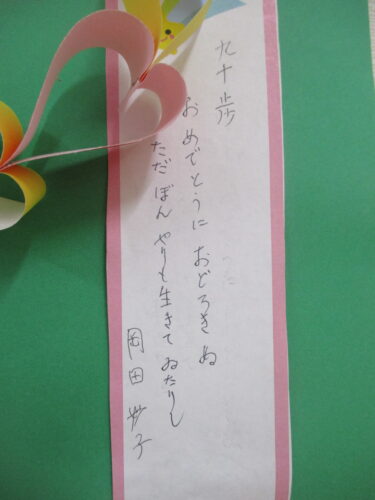 九十歩
おめでとうに おどろきぬ
ただぼんやりと生きてゐたりし
岡田 妙子